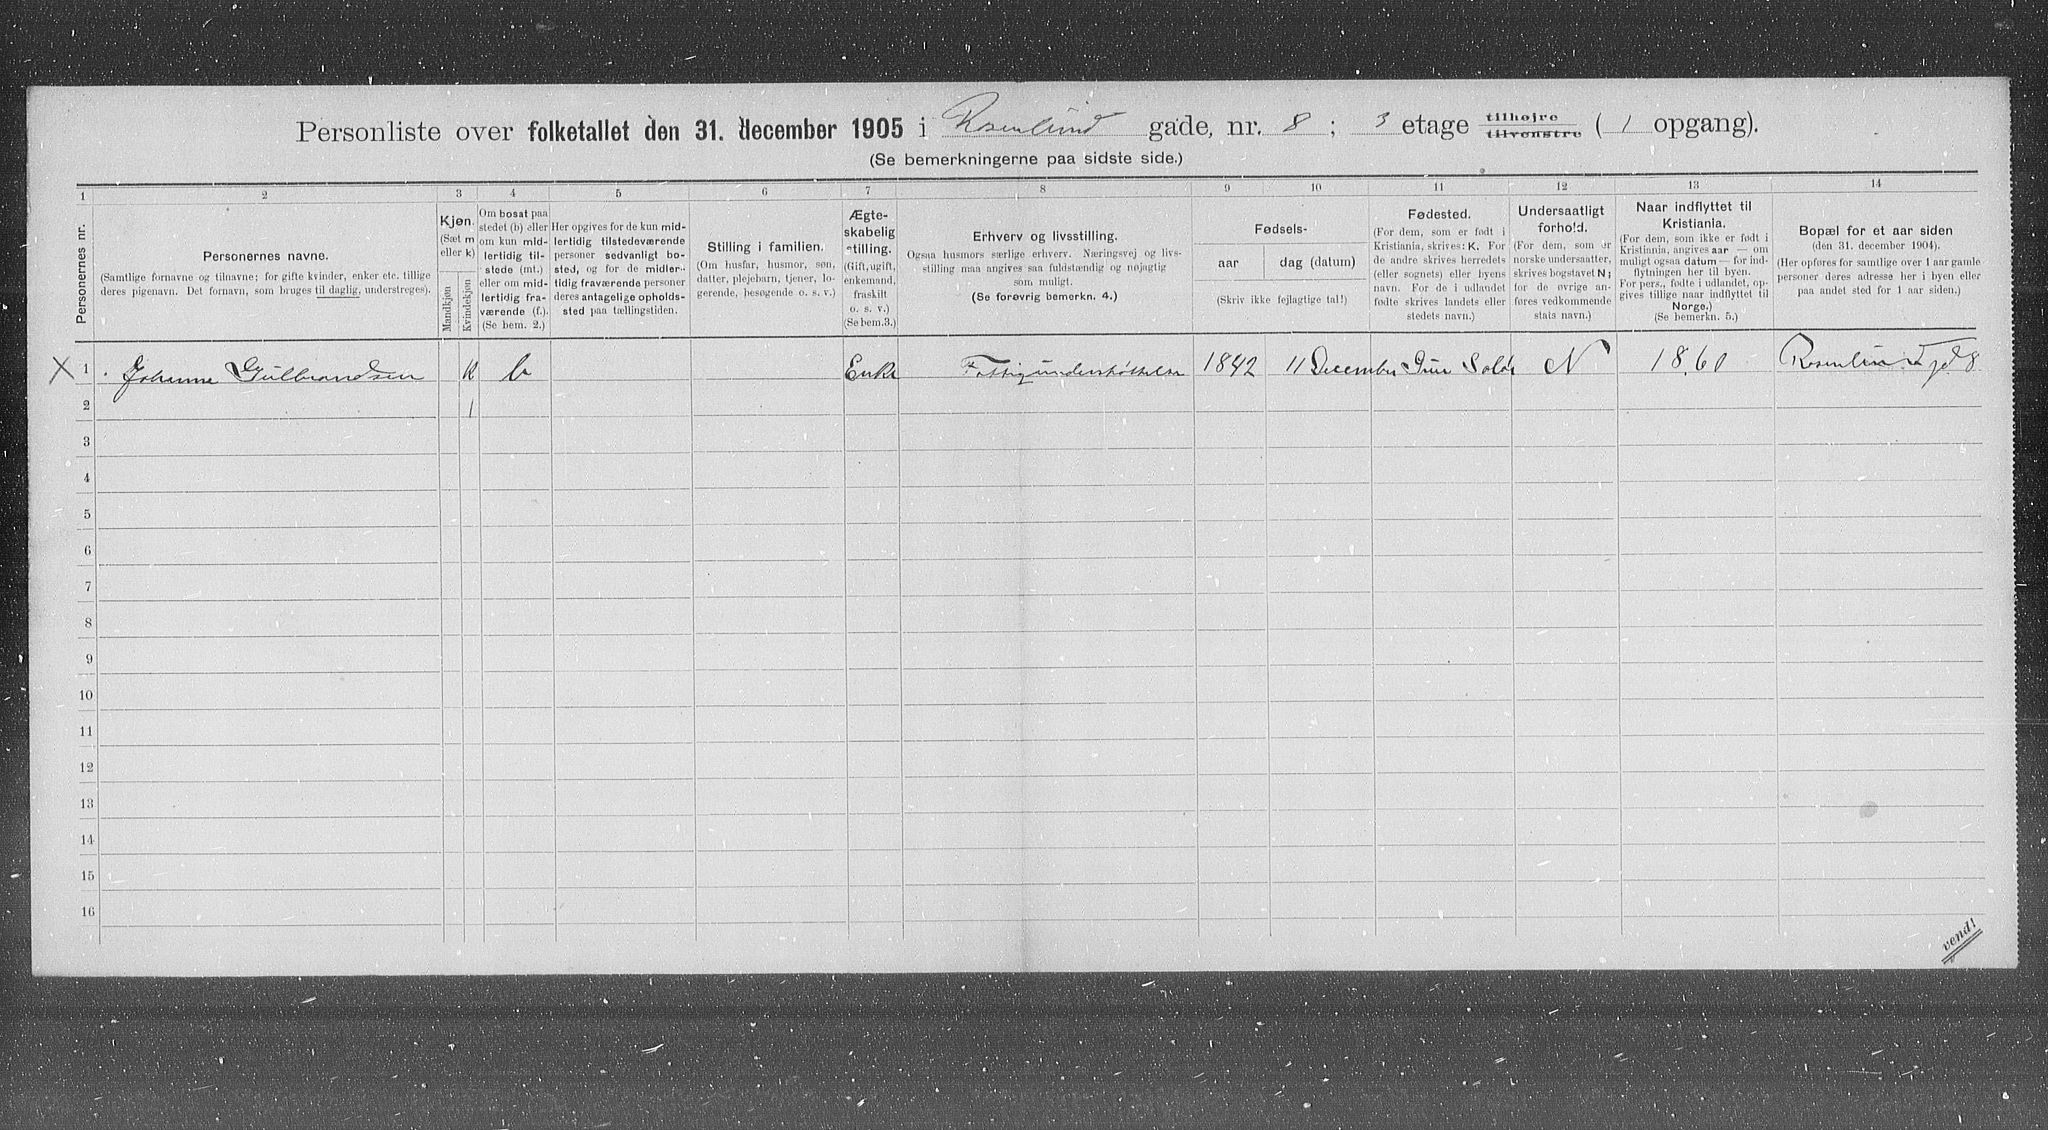 Personliste over folketallet den 31. december 1905 i Rosenlund gade, nr. 8 ; 3 etage tilhøjre tilvenstre ( 1 opgang).
(Se bemerkningerne paa sidste side.)
1 2 3 4 5 6 7 8 9 10 11 12 13 14
Personernes nr.
Personernes navne.
(Samtlige fornavne og tilnavne; for gifte kvinder, enker etc. tillige
deres pigenavn. Det fornavn, som bruges til daglig, understreges).
Kjøn.
(Sæt m
eller k)
Mandkjøn
Kvindekjøn
Om bosat paa
stedet (b) eller
om kun mid-
lertidig til-
stede (mt.)
eller om mid-
lertidig fra-
værende (f.).
(Se bem. 2.)
Her opgives for de kun mid-
lertidig tilstedeværende
personer sedvanlig bo-
sted, og for de midler-
tidig fraværende personer
deres antagelige opholds-
sted paa tællingstiden.
Stilling i familien.
(Om husfar, husmor, søn,
datter, plejebarn, tjener, lo-
gerende, besøgende o. s. v.)
Ægte-
skabelig
stilling.
(Gift, ugift,
enkemand,
fraskilt
o. s. v.)
(Se bem.3.)
Erhverv og livsstilling.
Ogsaa husmors særlige erhverv. Næringsvej og livs-
stilling maa angives saa fuldstændig og nøjagtig
som muligt.
(Se forøvrig bemerkn. 4.)
Fødsels-
aar
dag (datum)
(Skriv ikke fejlagtige tal!)
Fødested.
(For dem, som er født i
Kristiania, skrives: K. For
de andre skrives herredets
(eller sognets) eller byens
navn. For de i udlandet
fødte skrives landets eller
stedets navn.)
Undersaatligt
forhold.
(For dem, som er
norske undersaatter,
skrives bogstavet N;
for de øvrige an-
føres vedkommende
stats navn.)
Naar indflyttet til
Kristiania.
(For dem, som ikke er født i
Kristinnia, angives aar — om
muligt ogsaa datum — for ind-
flytningen her til byen.
For pers., fødte i udlandet, op-
gives tillige naar indflyttet til
Norge.)
(Se bemerkn. 5.)
Bopæl for et aar siden
(den 31. december 1904).
(Her opføres for samtlige over 1 aar gamle
personer deres adresse her i byen eller
paa andet sted for 1 aar siden.)
X 1 Johanne Gulbrandsen k b Enke Fattigunderstøttelse 1842 11 December Grue Solør N 1860 Rosenlund gd 8
2 1
3
4
5
6
7
8
9
10
11
12
13
14
15
16
vend!